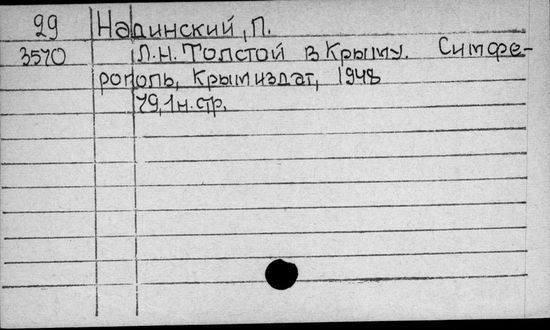 99 Надинский, П.
3570 Л.Н. Толстой в Крыму. Симфе-
рополь, Крымиздат, 1948
79, 1 н. стр.